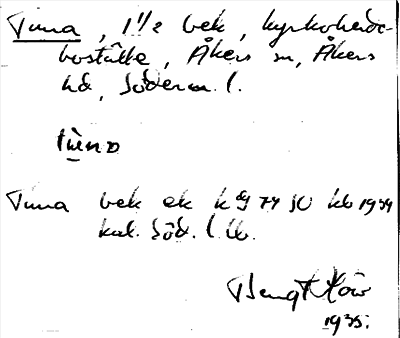 Tuna, 1 1/2 bek, kyrkoherde-
boställe, Åkers sn, Åkers
hd, Söderm. l.
tùna
Tuna bek ek k 74 SO kb 1934
kat. Söd. l. lb.
Bengt
1935.